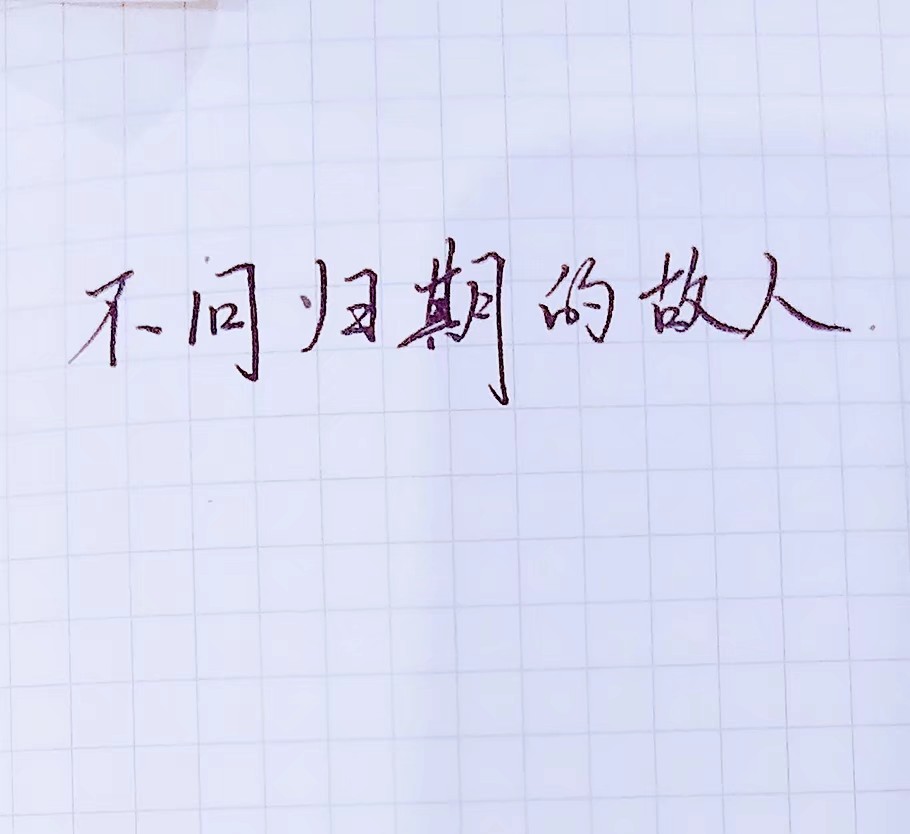 不问归期的故人.